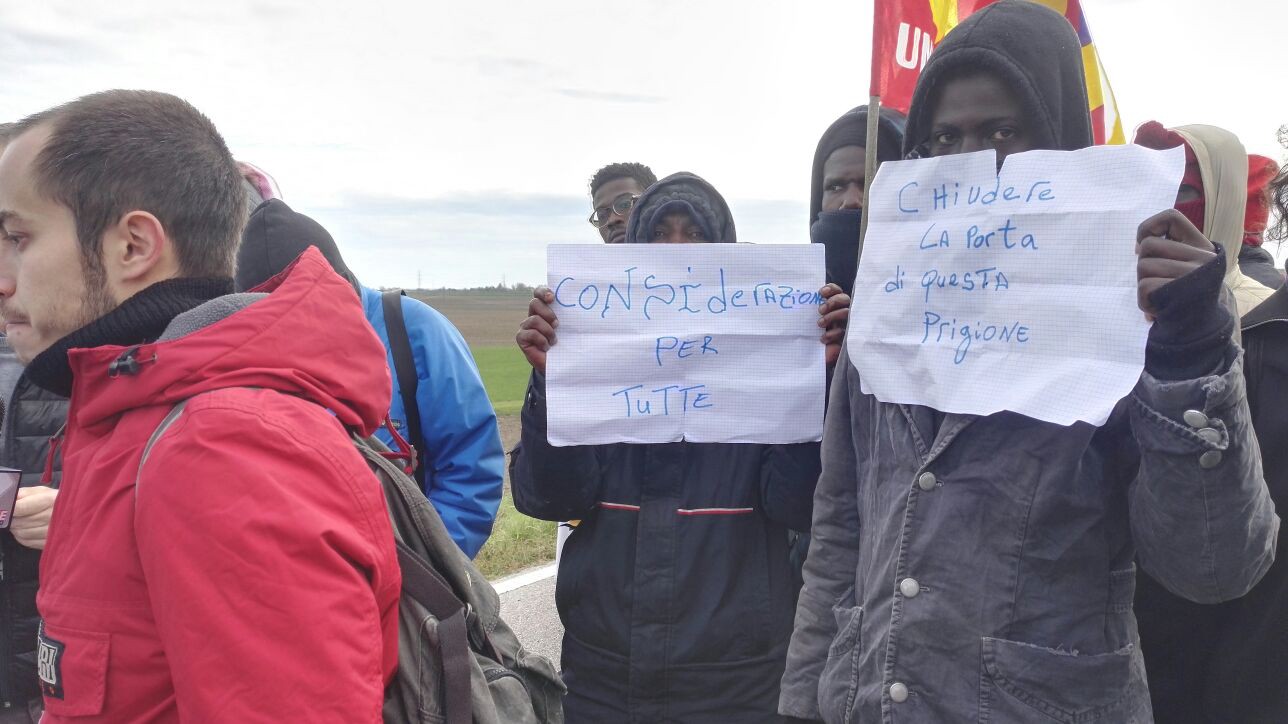 UN
CONSiderAZIONE
PER
TuTTE
CHiudere
LA PorTa
di QuesTA
Prigione